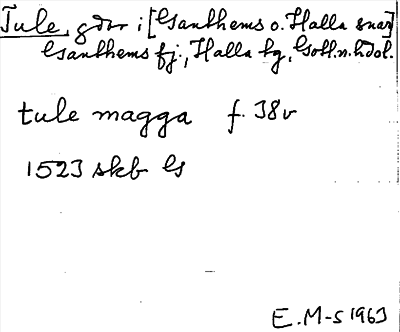 Tule, gdr i [Ganthems o. Halla snar]
Ganthems fj., Halla hg, Gotl.n.hdol.
tule magga f. 38v
1523 skb G
E.M-s 1963